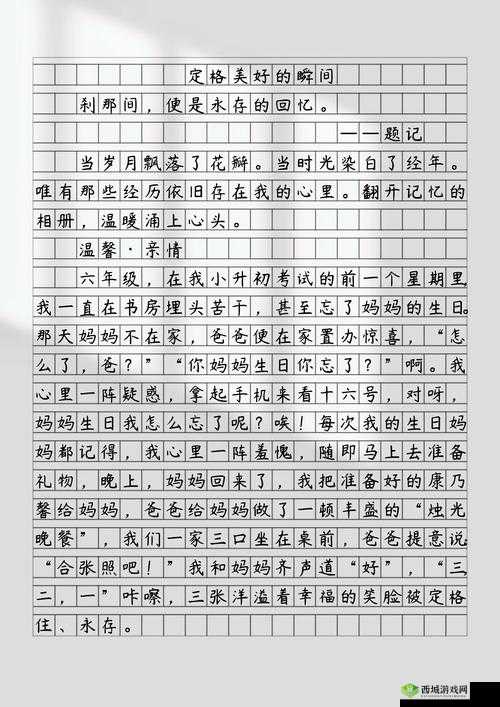 定格美好的瞬间
刹那间，便是永存的回忆。
——题记
当岁月飘落了花瓣。当时光染白了经年。
唯有那些经历依旧存在我的心里。翻开记忆的
相册，温暖涌上心头。
温馨·亲情
六年级，在我小升初考试的前一个星期里
我一直在书房埋头苦干，甚至忘了妈妈的生日。
那天妈妈不在家，爸爸便在家置办惊喜，“怎
么了，爸？”“你妈妈生日你忘了？”啊。我
心里一阵疑惑，拿起手机来看十六号，对呀，
妈妈生日我怎么忘了呢？唉！每次我的生日妈
妈都记得，我心里一阵羞愧，随即马上去准备
礼物，晚上，妈妈回来了，我把准备好的康乃
馨给妈妈，爸爸给妈妈做了一顿丰盛的“烛光
晚餐”，我们一家三口坐在桌前，爸爸提意说
“合张照吧！”我和妈妈齐声道“好”，“三
二，一”咔嚓，三张洋溢着幸福的笑脸被定格
住、永存。
西城游戏网